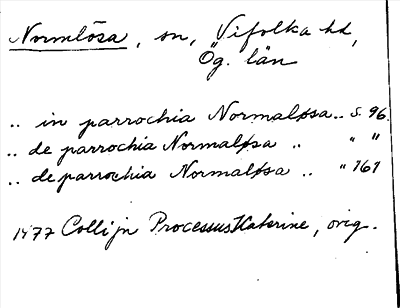 Normlösa, sn, Vifolka hd,
Ög. län
.. in parrochia Normaløsa.. s. 96.
.. de parrochia Normaløsa .. " "
.. de parrochia Normaløsa .. " 161
1477 Collijn Processus Katerine, orig.